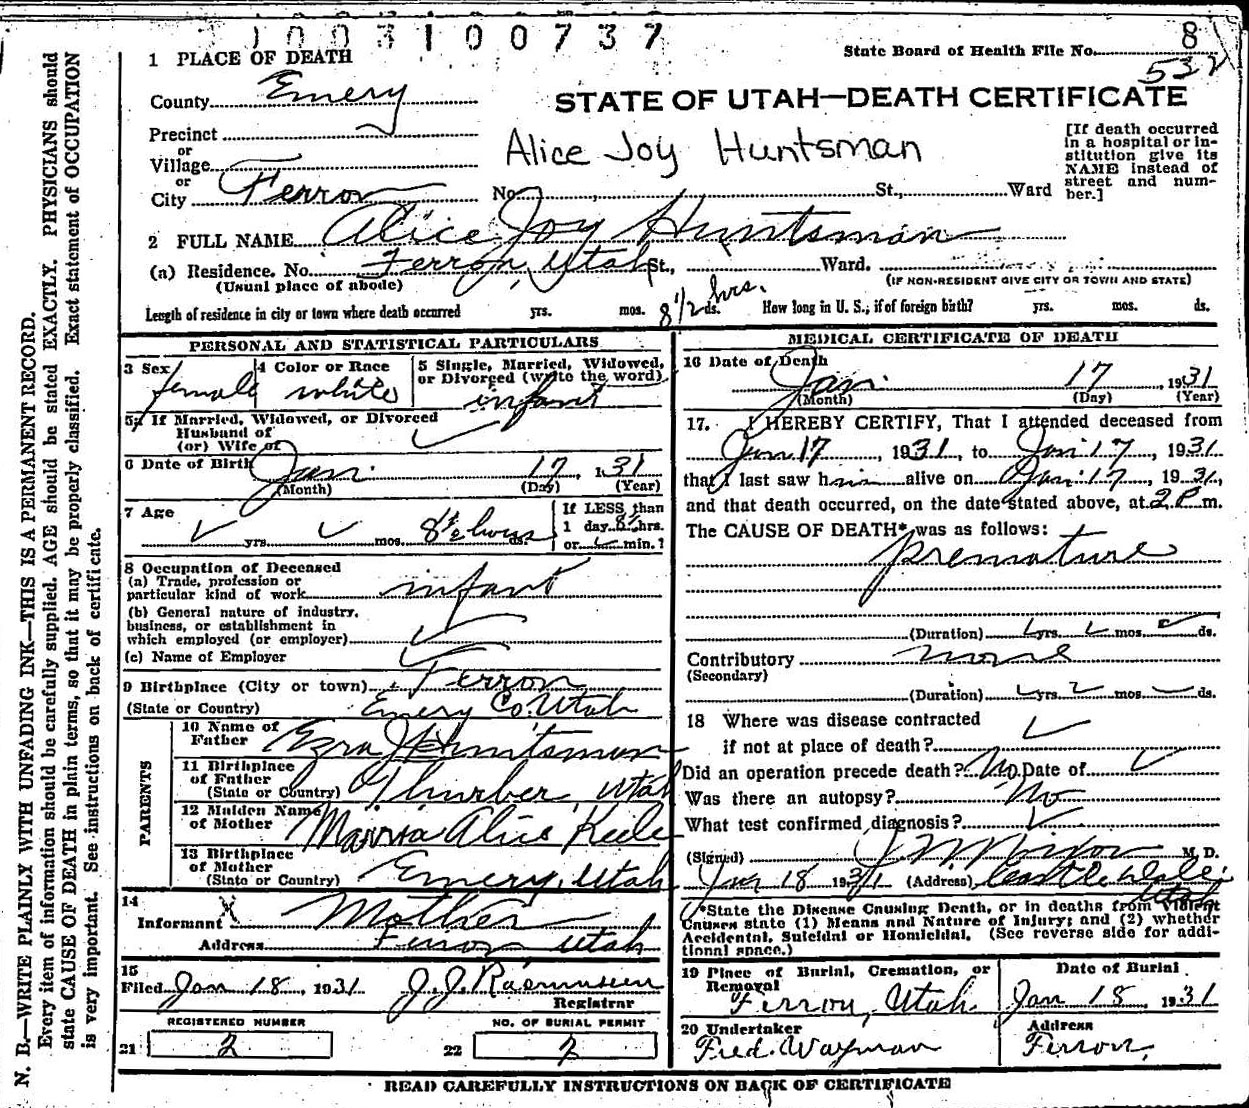 1003100737
State Board of Health File No. 8
532
1 PLACE OF DEATH
County Emery
STATE OF UTAH—DEATH CERTIFICATE
Precinct
or
Village
or
City Ferron
Alice Joy Huntsman
[If death occurred
in a hospital or in-
stitution give its
NAME instead of
street and num-
ber.]
No. St., Ward
2 FULL NAME Alice Joy Huntsman
(a) Residence. No. Ferron, Utah St., Ward.
(Usual place of abode) (IF NON-RESIDENT GIVE CITY OR TOWN AND STATE)
Length of residence in city or town where death occurred yrs. mos. 8 1/2 ds. hrs. How long in U. S., if of foreign birth? yrs. mos. ds.
PERSONAL AND STATISTICAL PARTICULARS
3 Sex female 4 Color or Race white 5 Single, Married, Widowed,
or Divorced (write the word) infant
5a If Married, Widowed, or Divorced
Husband of
(or) Wife of
6 Date of Birth Jan. 17, 1931
(Month) (Day) (Year)
7 Age
yrs. mos. 8 1/2 hours ds.
If LESS than
1 day 8 1/2 hrs.
or min.?
8 Occupation of Deceased
(a) Trade, profession or
particular kind of work infant
(b) General nature of industry,
business, or establishment in
which employed (or employer)
(c) Name of Employer
9 Birthplace (City or town) Ferron
(State or Country) Emery Co. Utah
PARENTS
10 Name of
Father Ezra J Huntsman
11 Birthplace
of Father
(State or Country) Thurber, Utah
12 Maiden Name
of Mother Alice Keele
13 Birthplace
of Mother
(State or Country) Emery, Utah
14
Informant X Mother
Address Ferron, Utah
15
Filed Jan 18, 1931 J. J. Rasmussen
Registrar
REGISTERED NUMBER NO. OF BURIAL PERMIT
21 2 22 2
MEDICAL CERTIFICATE OF DEATH
16 Date of Death
Jan. 17, 1931
(Month) (Day) (Year)
17. I HEREBY CERTIFY, That I attended deceased from
Jan 17, 1931, to Jan 17, 1931
that I last saw him alive on Jan 17, 1931,
and that death occurred, on the date stated above, at 2 P. m.
The CAUSE OF DEATH* was as follows:
premature
(Duration) yrs. mos. ds.
Contributory none
(Secondary)
(Duration) yrs. mos. ds.
18 Where was disease contracted
if not at place of death?
Did an operation precede death? No Date of
Was there an autopsy? No
What test confirmed diagnosis?
(Signed) M. D.
Jan 18 1931 (Address) Castle Dale, Utah
*State the Disease Causing Death, or in deaths from Violent
Causes state (1) Means and Nature of Injury; and (2) whether
Accidental, Suicidal or Homicidal. (See reverse side for addi-
tional space.)
19 Place of Burial, Cremation, or
Removal
Ferron, Utah.
Date of Burial
Jan 18, 1931
20 Undertaker
Fred. Wayman
Address
Ferron,
READ CAREFULLY INSTRUCTIONS ON BACK OF CERTIFICATE
N. B.—WRITE PLAINLY WITH UNFADING INK—THIS IS A PERMANENT RECORD.
Every item of information should be carefully supplied. AGE should be stated EXACTLY. PHYSICIANS should
state CAUSE OF DEATH in plain terms, so that it may be properly classified. Exact statement of OCCUPATION
is very important. See instructions on back of certificate.